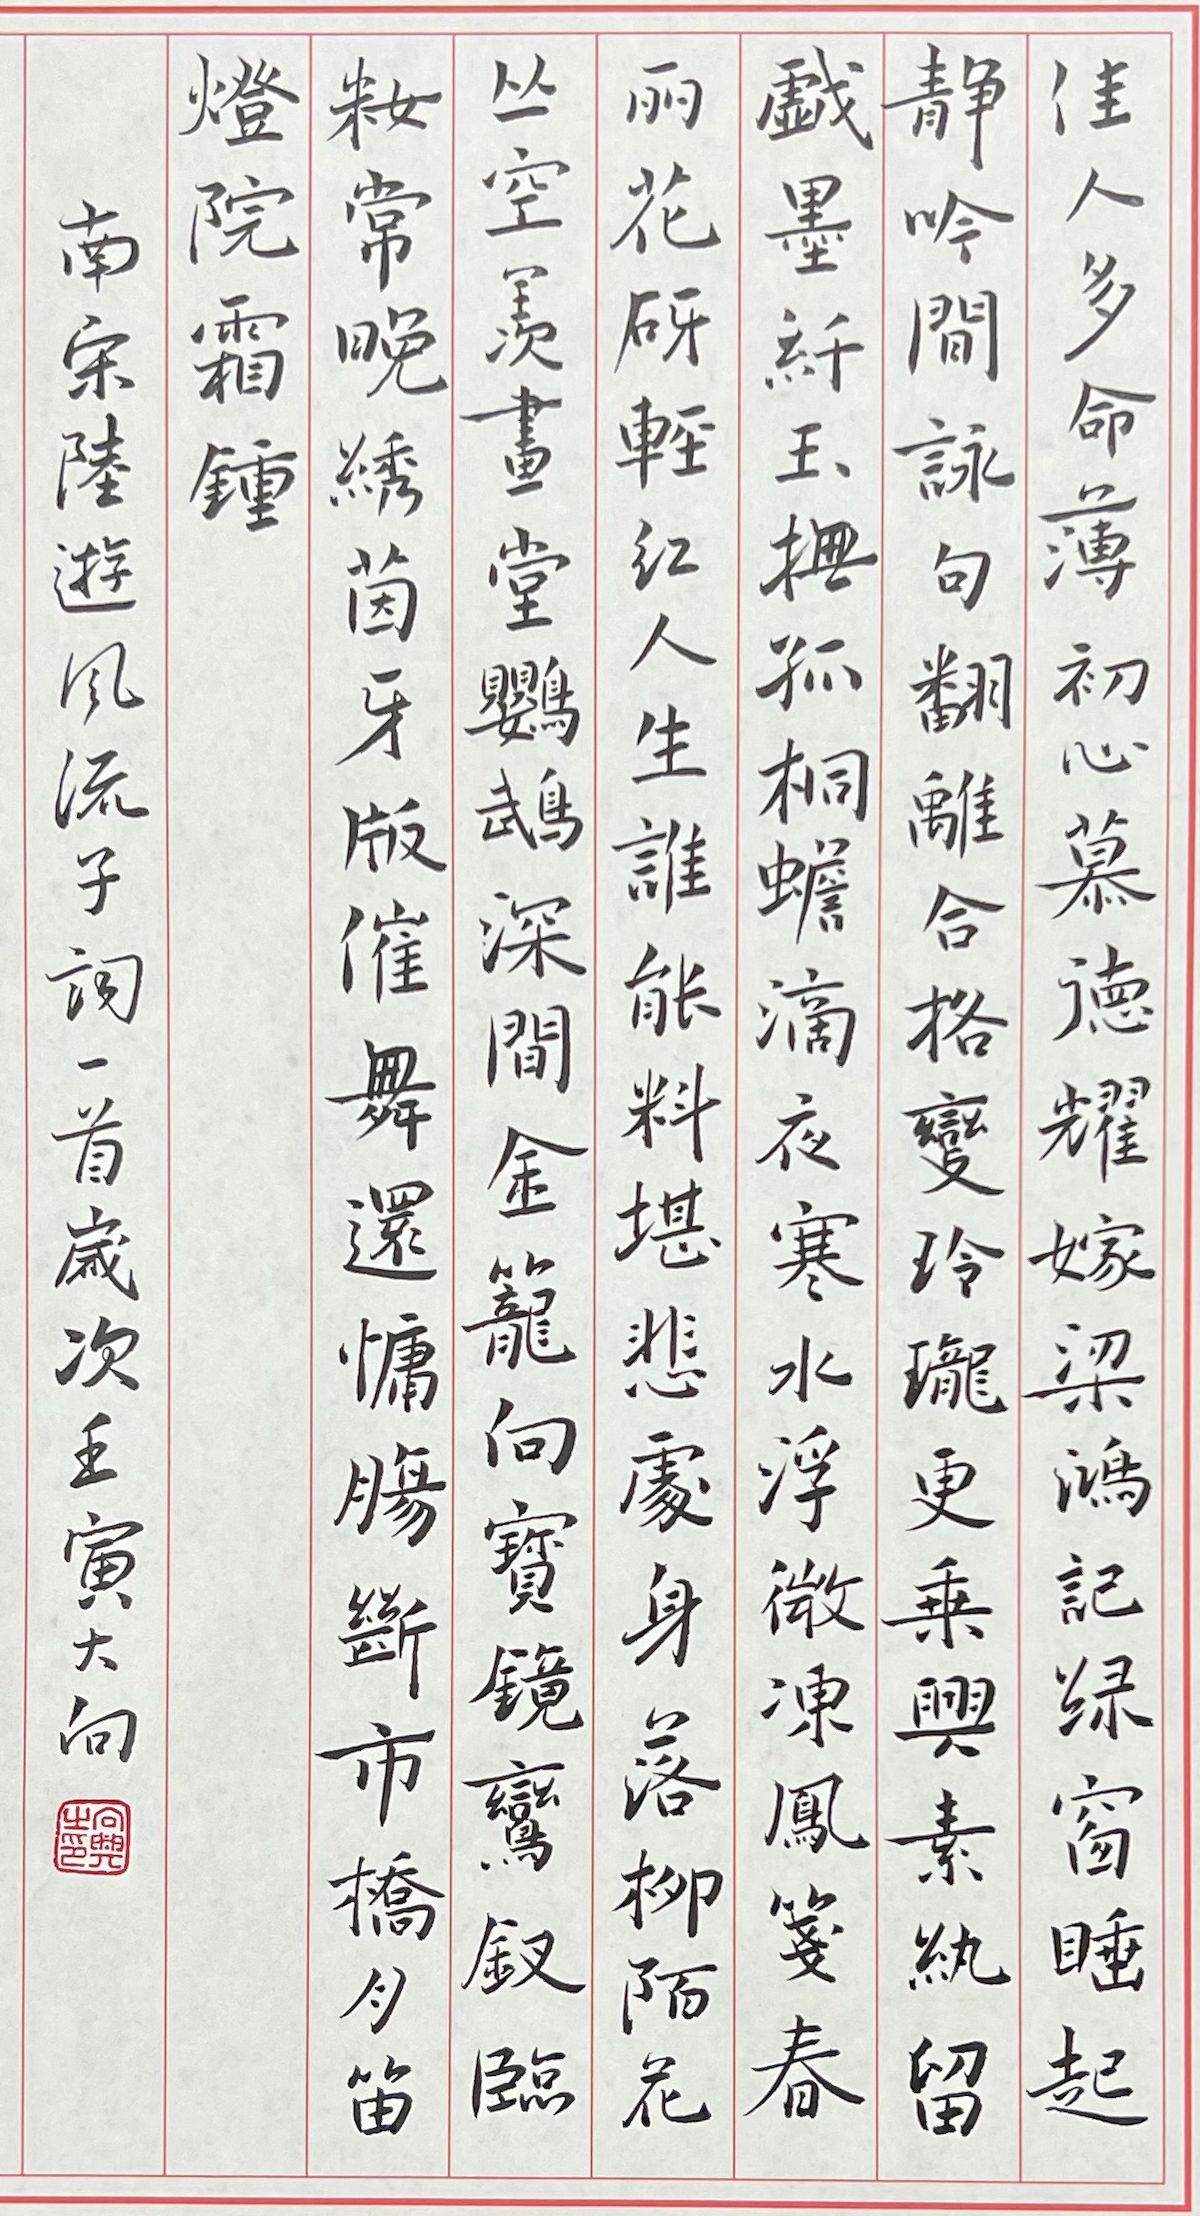 佳人多命薄初心慕德耀嫁梁鴻記绿窗睡起
静吟間詠句翻離合格變玲瓏更乗興素紈留
戯墨纤玉撫孤桐蟾滴夜寒水浮微凍鳳箋春
丽花砑輕红人生誰能料堪悲處身落柳陌花
丛空羡畫堂鸚鵡深間金籠向寶鏡鸞釵臨
妝常晚繡茵牙版催舞還慵腸斷市橋月笛
燈院霜鍾
南宋陸遊风流子詞一首歲次壬寅大向
向興之印